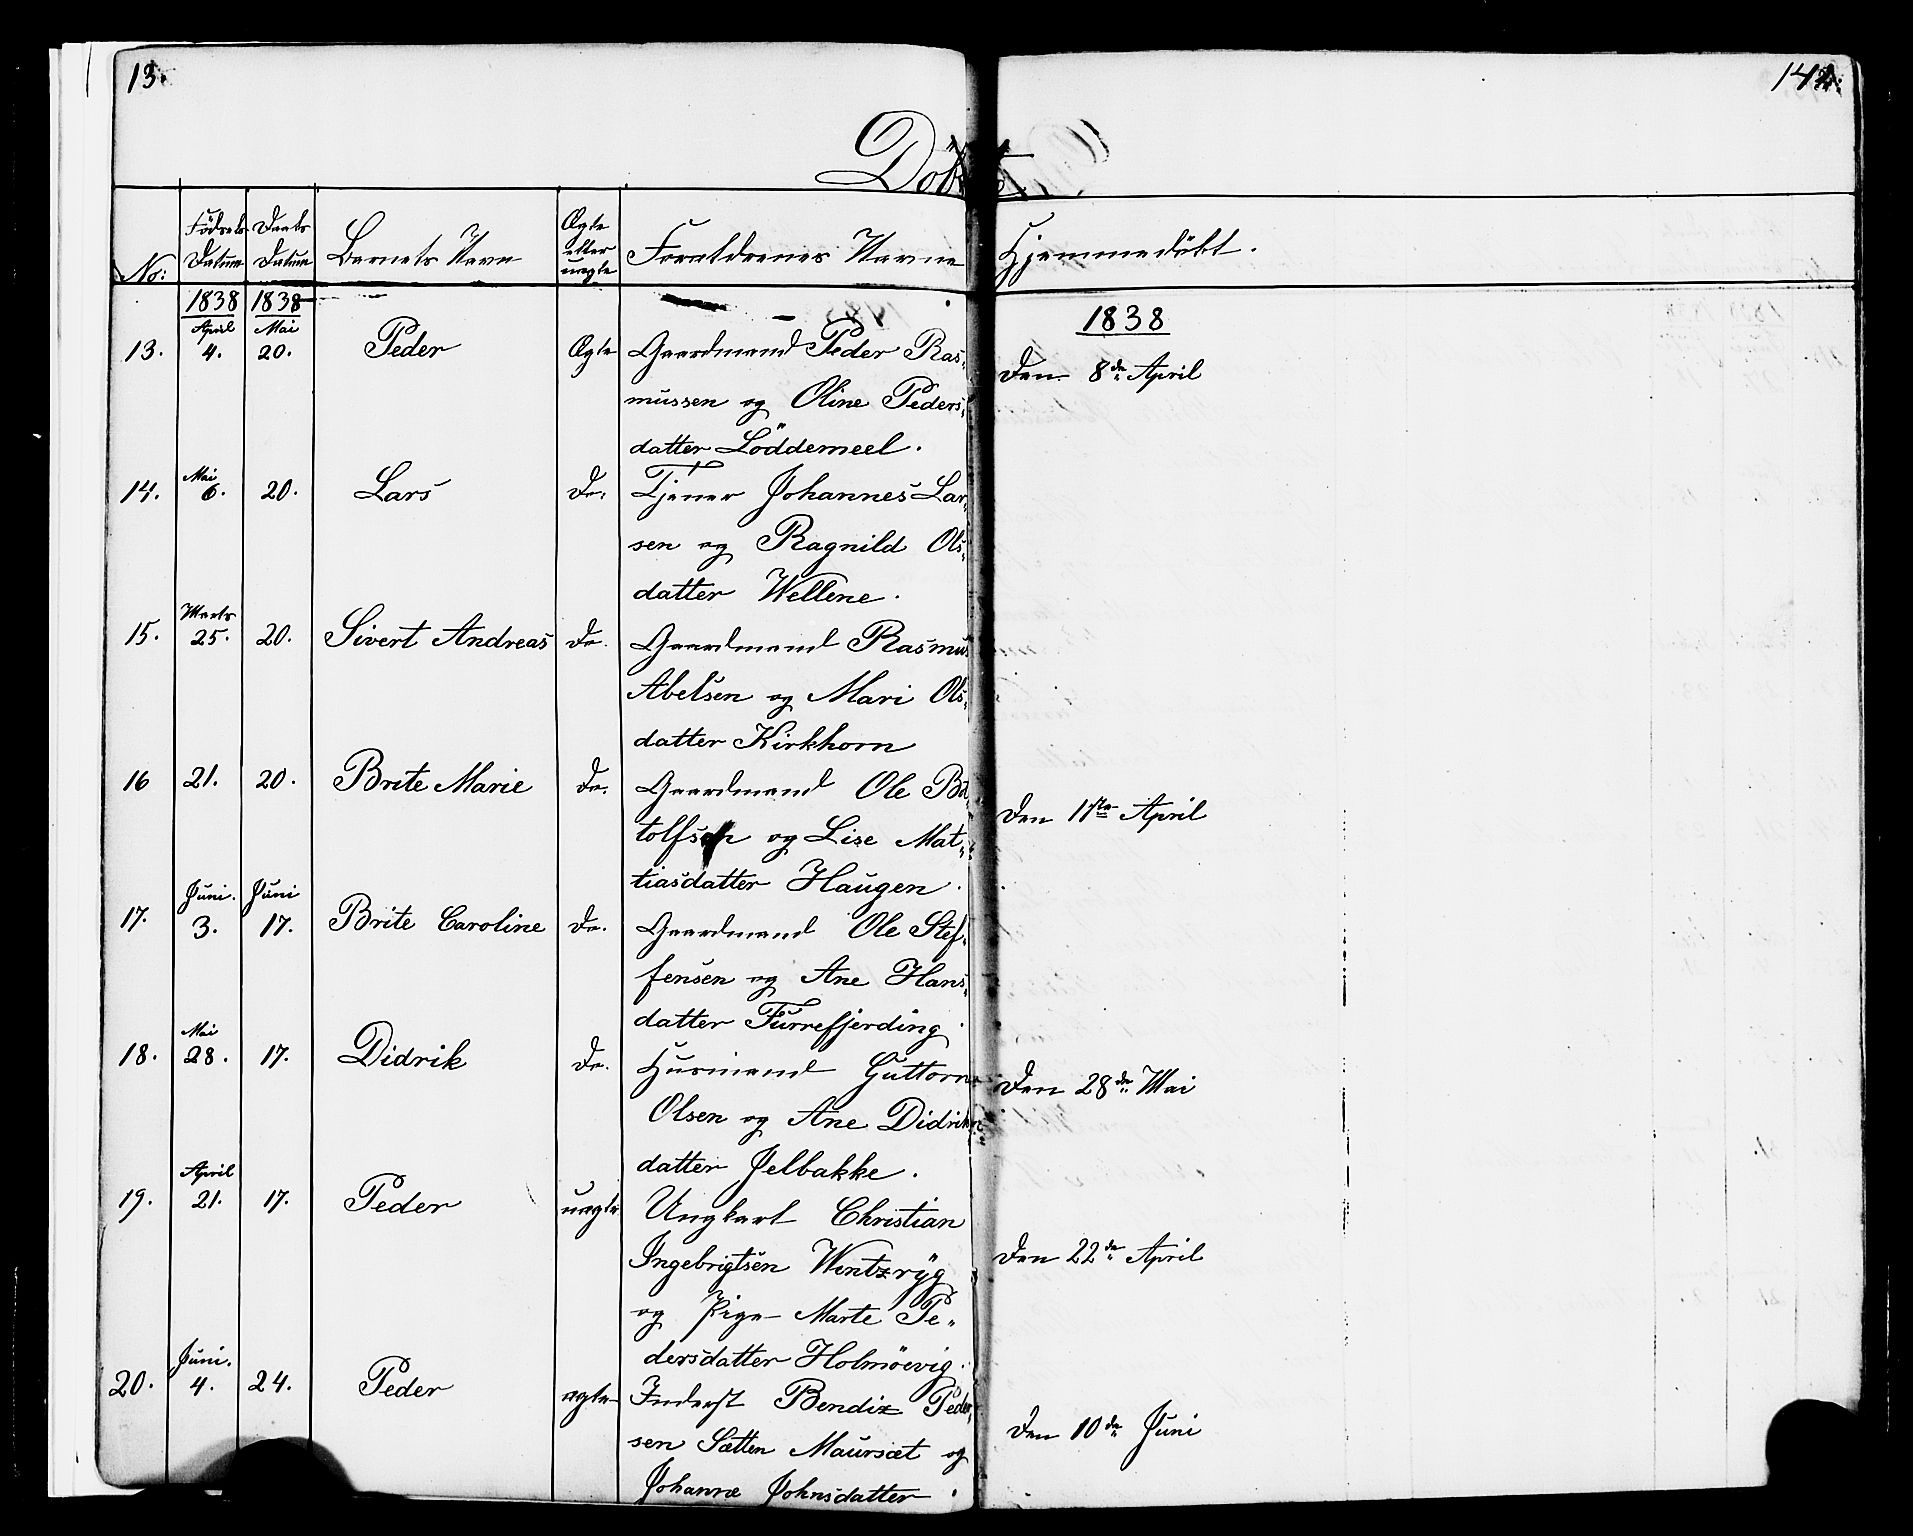 13.
14.
Döbte
No: Födsels Datum Daabs Datum Barnets Navn Ægte eller uægte Forældrenes Navne Hjemmedöbt.
1838 1838 1838
April Mai
13. 4. 20. Peder Ægte Gaardmand Peder Ras- Den 8de April
mussen og Oline Peders-
datter Löddemeel.
Mai
14. 6. 20. Lars Do: Tjener Johannes Lar-
sen og Ragnild Ols-
datter Wellene.
Marts
15. 25. 20. Sivert Andreas Do. Gaardmand Rasmus
Abelsen og Mari Ols-
datter Kirkhorn
16 21. 20. Brite Marie Do. Gaardmand Ole Bo- Den 1ste April
tolfsen og Lise Mat-
tiasdatter Haugen.
Juni. Juni
17. 3. 17. Brite Caroline Do. Gaardmand Ole Stef-
fensen og Ane Hans-
datter Furrefjerding.
Mai
18. 28. 17. Didrik Do. Husmand Guttorm Den 28de Mai
Olsen og Ane Didriks-
datter Jelbakke.
April
19. 21. 17. Peder uægte Ungkarl Christian
Ingebrigtsen Wentzryg Den 22de April
og Pige Marte Pe-
dersdatter Holmöevig.
Juni.
20. 4. 24. Peder ægte Inderst Bendix Peder- Den 10de Juni
sen Sætten Maursæt og
Johanne Johnsdatter.